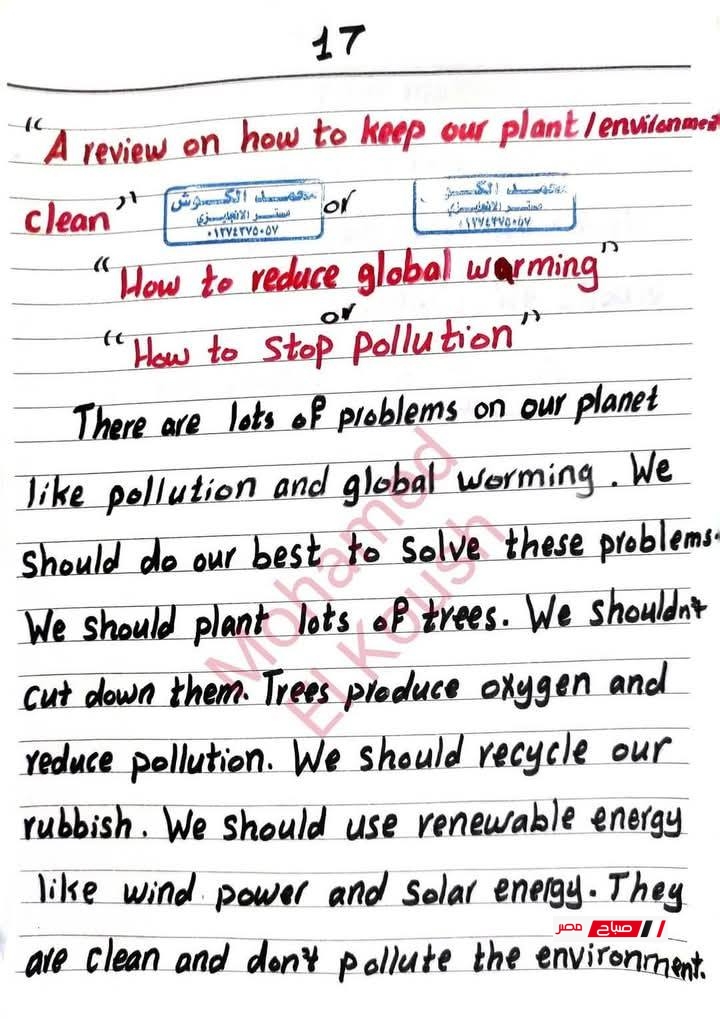 17
"A review on how to keep our plant/environment
clean" or
محمد الكوش
مستر الانجليزي
٠١٢٧٤٢٧٥٠٥٧
محمد الكو
مستر الانجليزي
"How to reduce global warming"
or
"How to stop pollution"
There are lots of problems on our planet
like pollution and global worming. We
should do our best to solve these problems.
We should plant lots of trees. We shouldn't
cut down them. Trees produce oxygen and
reduce pollution. We should recycle our
rubbish. We should use renewable energy
like wind power and solar energy. They
are clean and don't pollute the environment.
Mohamed
El Koush
صباح مصر